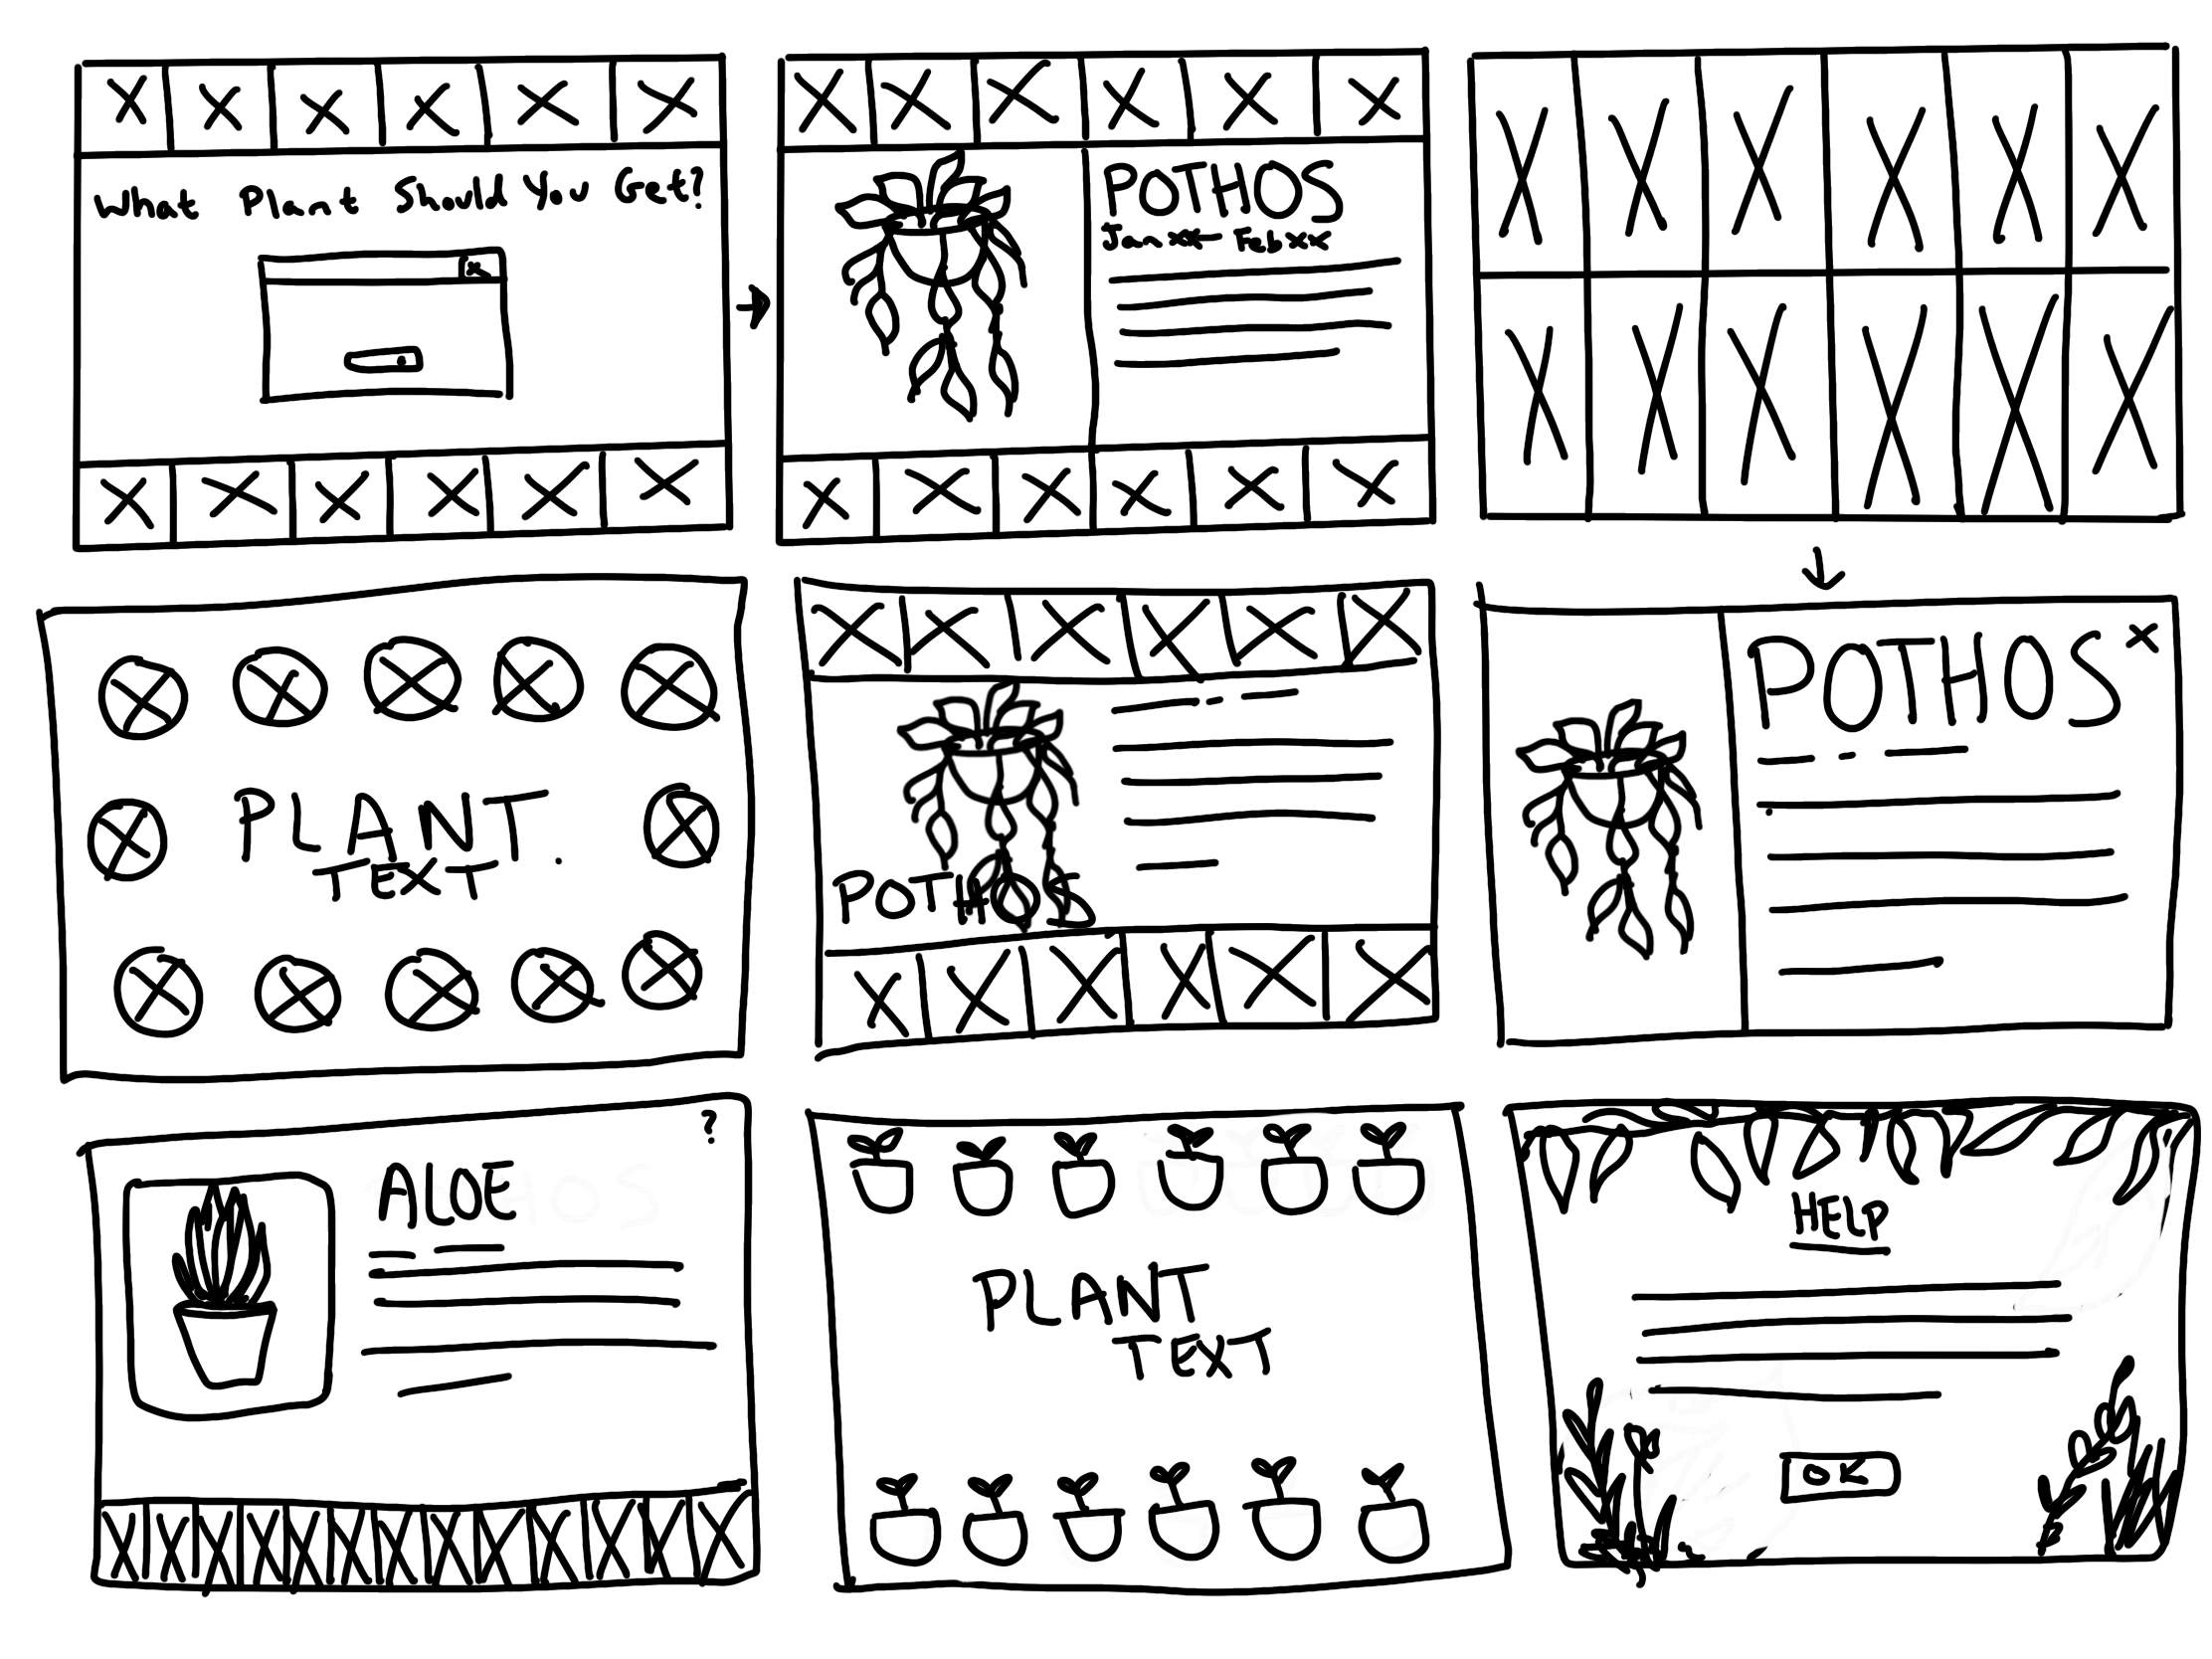 What Plant Should You Get?
x
POTHOS
Jan xx - Feb xx
PLANT.
TEXT
POTHOS
POTHOS
x
?
ALOE
PLANT
TEXT
HELP
OK